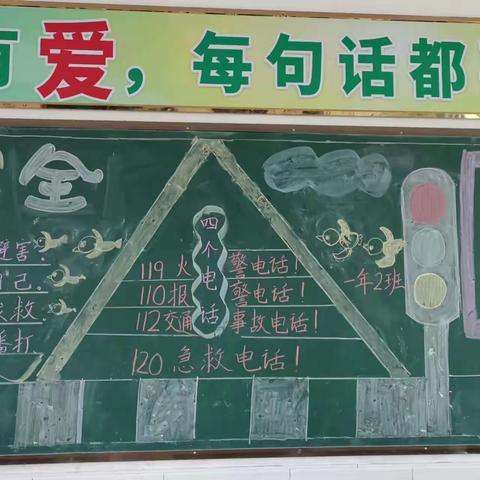 有爱，每句话都
全
害.
己.
救
打
四个电话
119火警电话！
110报警电话！
112交通事故电话！
120急救电话！
一年2班